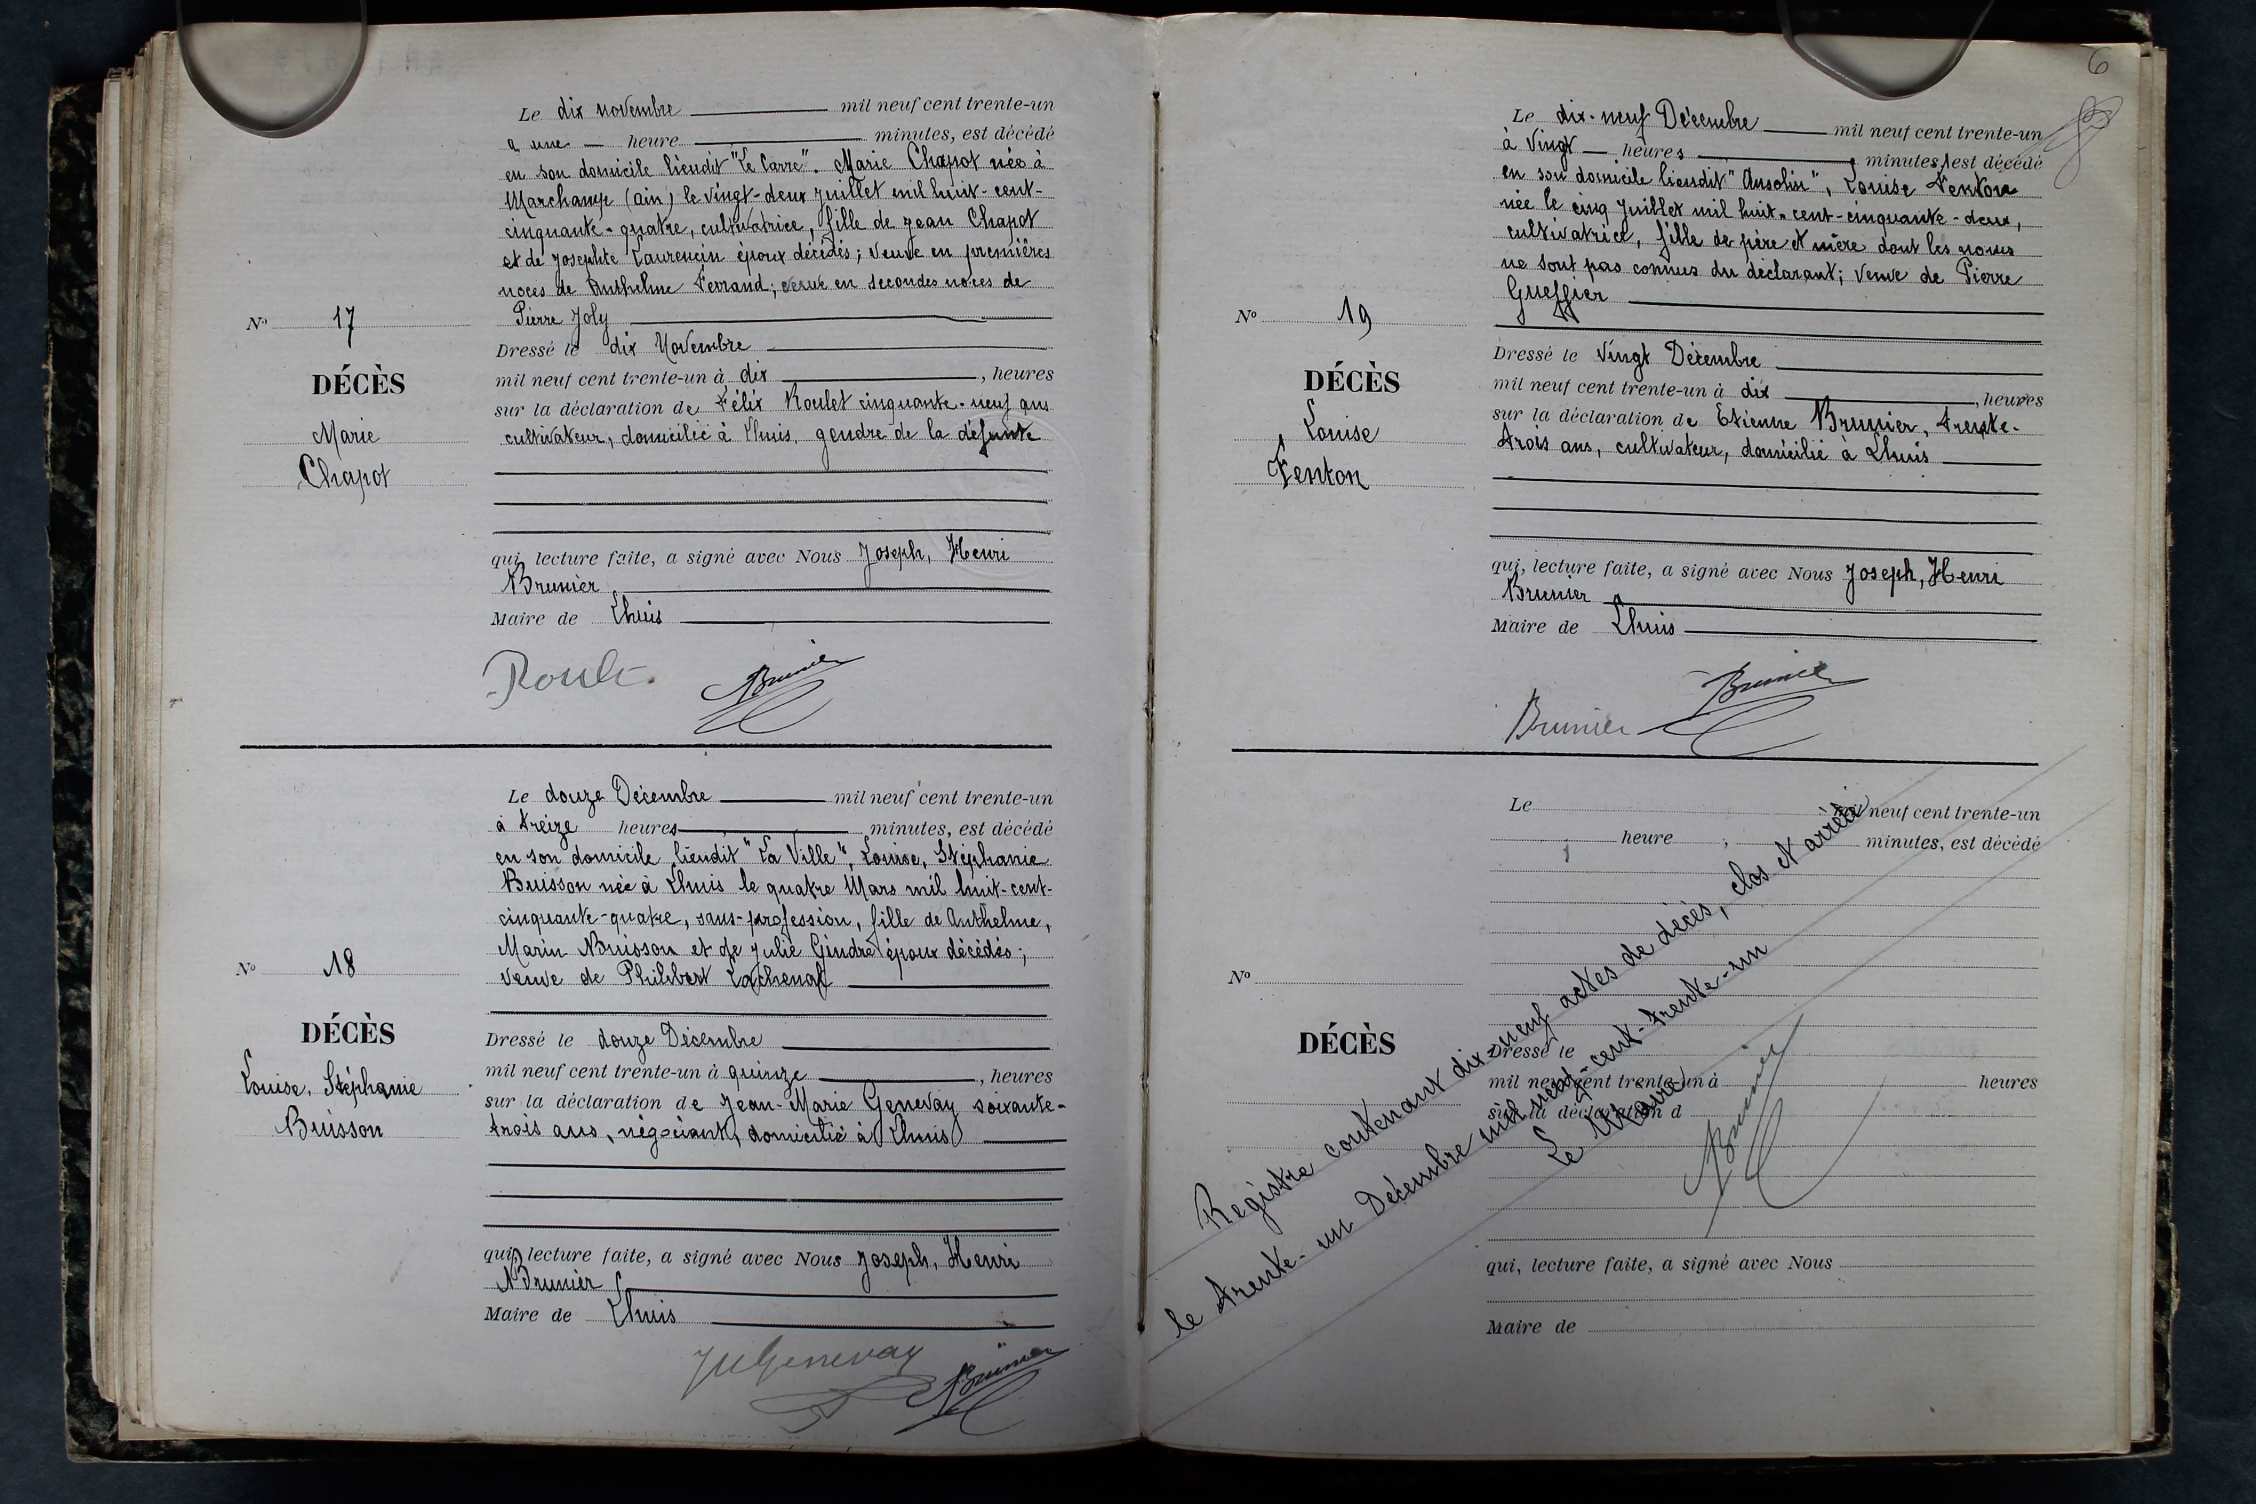 Le dix novembre mil neuf cent trente-un
à une heure minutes, est décédé
en son domicile lieudit "Le Carre". Marie Chapot née à
Marchamp (ain) le vingt-deux juillet mil huit-cent-
cinquante-quatre, cultivatrice, fille de Jean Chapot
et de Josephte Laurencin époux décédés; veuve en premières
noces de Anthelme Ferrand; veuve en secondes noces de
Pierre Joly
N° 17
DÉCÈS
Marie
Chapot
Dressé le dix Novembre
mil neuf cent trente-un à dix, heures
sur la déclaration de Félix Roulet cinquante-neuf ans
cultivateur, domicilié à Lhuis, gendre de la défunte
qui, lecture faite, a signé avec Nous Joseph, Henri
Brunier
Maire de Lhuis
Brunier
Le douze Décembre mil neuf cent trente-un
à treize heures minutes, est décédé
en son domicile lieudit "La Ville", Louise, Stéphanie
Buisson née à Lhuis le quatre Mars mil huit-cent-
cinquante-quatre, sans-profession, fille de Anthelme,
Marin Buisson et de Julie Gindre époux décédés;
veuve de Philibert Lachenal
N° 18
DÉCÈS
Louise, Stéphanie
Buisson
Dressé le douze Décembre
mil neuf cent trente-un à quinze, heures
sur la déclaration de Jean-Marie Genevay soixante-
trois ans, négociant, domicilié à Lhuis
qui, lecture faite, a signé avec Nous Joseph, Henri
Brunier
Maire de Lhuis
JMGenevay Brunier
6
Le dix-neuf Décembre mil neuf cent trente-un
à vingt heures minutes, est décédé
en son domicile lieudit "Ansolin", Louise Fenton
née le cinq Juillet mil huit-cent-cinquante-deux,
cultivatrice, fille de père et mère dont les noms
ne sont pas connus du déclarant; veuve de Pierre
Gueffier
N° 19
DÉCÈS
Louise
Fenton
Dressé le vingt Décembre
mil neuf cent trente-un à dix, heures
sur la déclaration de Etienne Brunier, trente-
trois ans, cultivateur, domicilié à Lhuis
qui, lecture faite, a signé avec Nous Joseph, Henri
Brunier
Maire de Lhuis
Brunier Brunier
Le neuf cent trente-un
heure minutes, est décédé
N°
DÉCÈS
Dressé le
mil neuf cent trente-un à heures
sur la déclaration d
qui, lecture faite, a signé avec Nous
Maire de
Registre contenant dix-neuf actes de décès, clos et arrêté
le trente-un Décembre mil neuf-cent-trente-un
Le Maire
Brunier